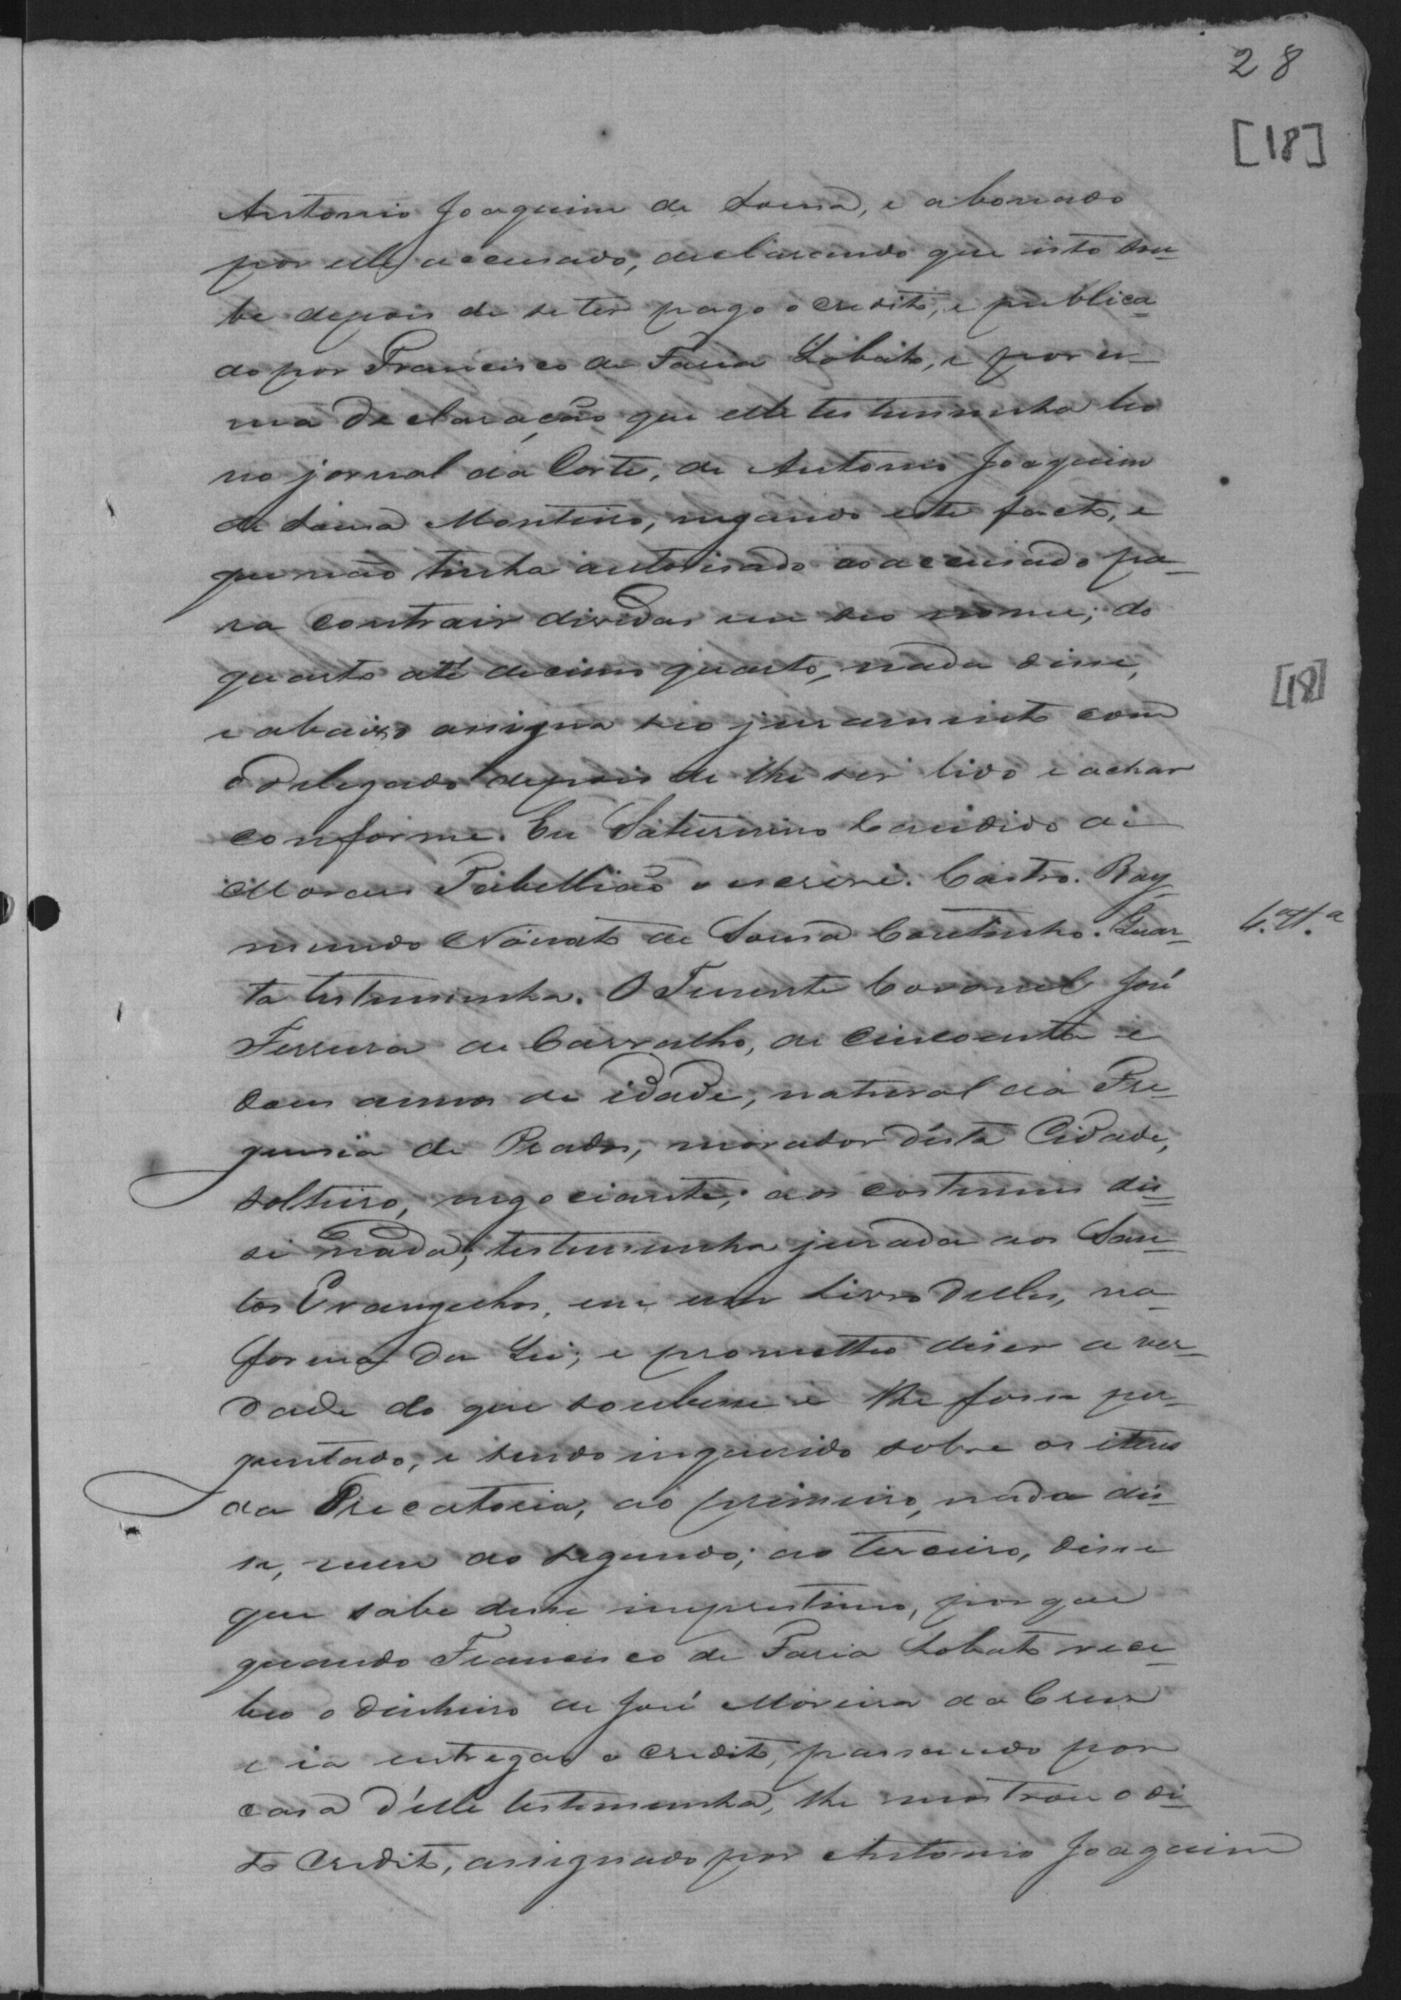 28
[18]
Antonio Joaquim de Sousa, e abonado
por elle accusado, declarando que isto sou-
be depois de se ter pago o credito, e publica-
do por Francisco de Faria Lobato, e por u-
ma declaração que elle testemunha leo
no jornal da Corte, de Antonio Joaquim
de Sousa Monteiro, negando este facto, e
que não tinha autorisado ao accusado pa-
ra contrair dividas em seo nome; do
quarto até decimo quarto, nada disse,
e abaixo assigna seo juramento com
o Delegado depois de lhe ser lido e achar
conforme. Eu Saturnino Candido de
Moraes Tabellião o escrevi. Castro. Ray-
mundo Nonato de Sousa Coutinho. Quar-
4.ª T.ª
ta testemunha. O Tenente Coronel José
Ferreira de Carvalho, de cincoenta e
dous annos de idade, natural da Fre-
guesia de Prados, morador désta Cidade,
solteiro, negociante; aos costumes dis-
se nada; testemunha jurada aos San-
tos Evangelhos, em um livro delles, na
forma da Lei; e prometteo diser a ver-
dade do que soubesse e lhe fosse per-
guntado, e sendo inquerido sobre os itens
da Precatoria, ao primeiro, nada dis-
se, nem ao segundo; ao terceiro, disse
que sabe desse imprestimo, porque
quando Francisco de Faria Lobato rece-
beo o dinheiro de José Moreira da Cruz
e ia entregar o credito, passando por
casa d'elle testemunha, lhe mostrou o di-
to credito, assignado por Antonio Joaquim
[18]